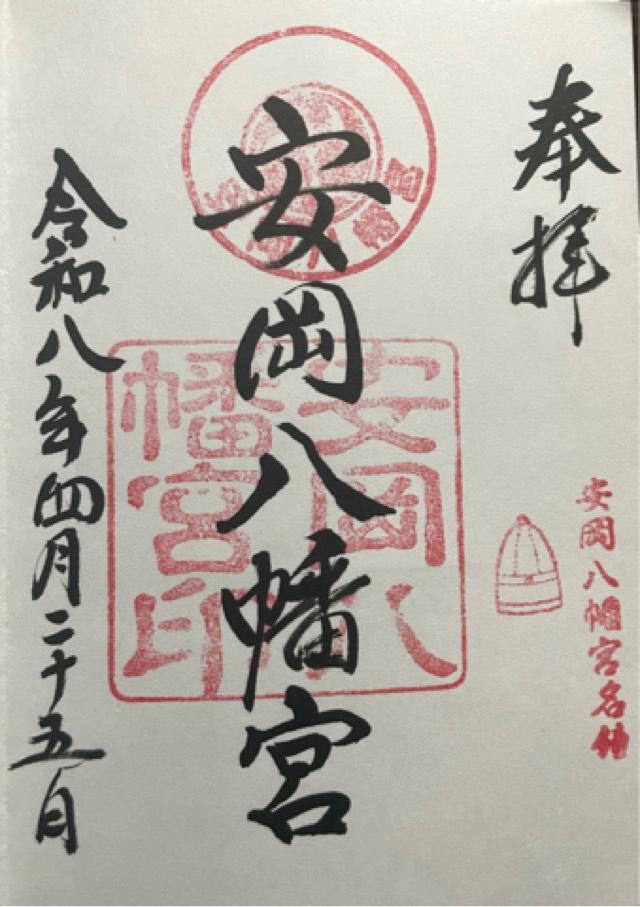 奉拝
安岡八幡宮名鐘
安岡八幡宮
安岡八幡宮印
令和八年四月二十五日